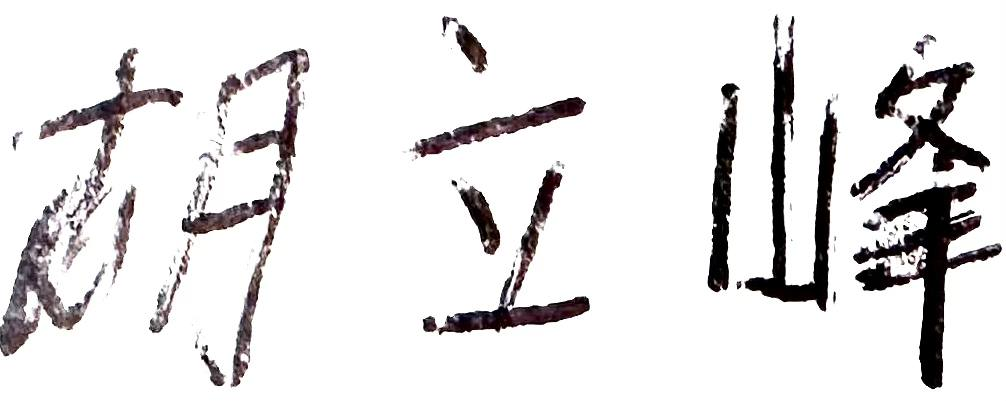 胡立峰